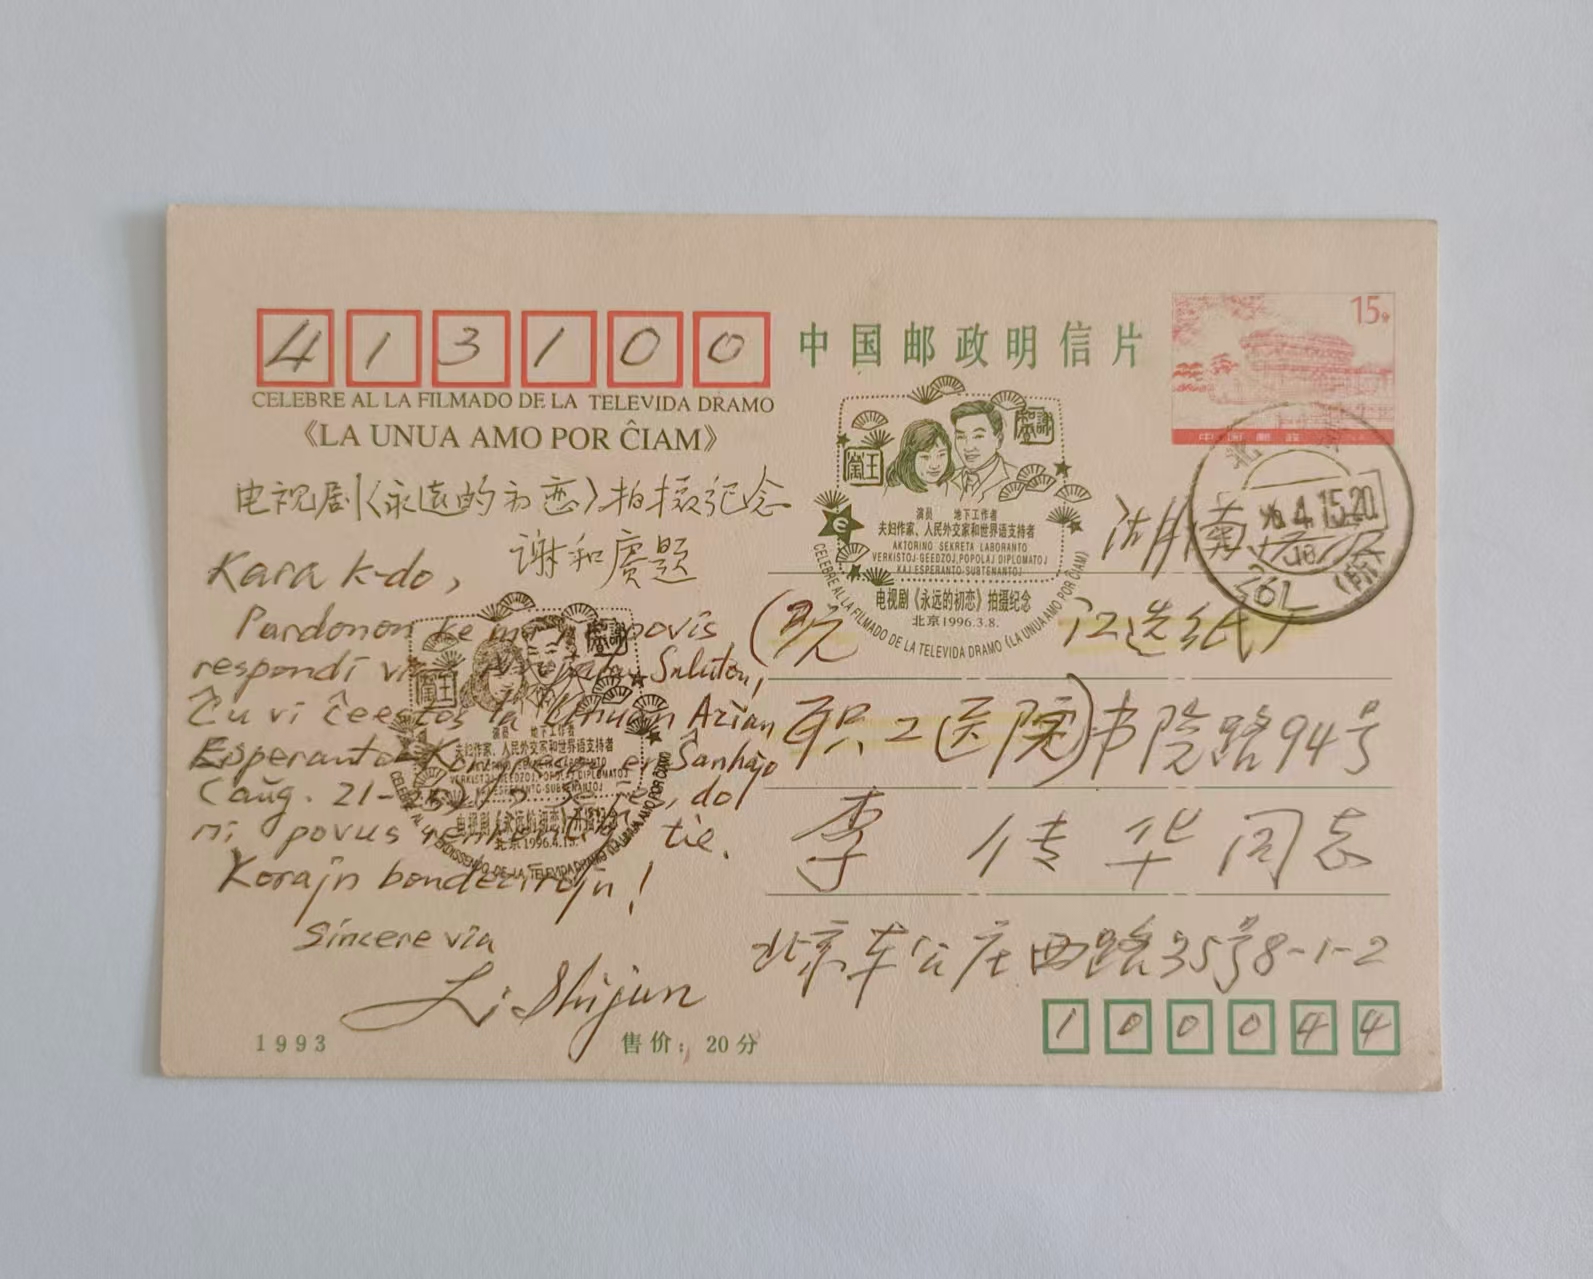 413100
中国邮政明信片
15分
CELEBRE AL LA FILMADO DE LA TELEVIDA DRAMO
《LA UNUA AMO POR ĈIAM》
电视剧《永远的初恋》拍摄纪念
谢和赓题
Kara k-do,
Pardonon ke mi povis
respondi Saluton,
Ĉu vi ĉeestos la Unuan Azian
Esperanto- en Ŝanhajo
(aŭg. 21- do
ni povus tie.
Korajn bondezirojn!
Sincere via
Li Shijun
演员 地下工作者
夫妇作家、人民外交家和世界语支持者
AKTORINO SEKRETA LABORANTO
VERKISTOJ-GEEDZOJ,POPOLAJ DIPLOMATOJ
KAJ ESPERANTO-SUBTENANTOJ
电视剧《永远的初恋》拍摄纪念
北京1996.3.8.
CELEBRE AL LA FILMADO DE LA TELEVIDA DRAMO《LA UNUA AMO POR ĈIAM》
演员 地下工作者
夫妇作家、人民外交家和世界语支持者
VERKISTOJ-GEEDZOJ,POPOLAJ DIPLOMATOJ
KAJ ESPERANTO-SUBTENANTOJ
北京1996.4.15.
北京
96.4.15.20
湖南
江造纸厂
职工医院)书院路94号
李传华同志
北京车公庄西路35号8-1-2
1993
售价：20分
100044